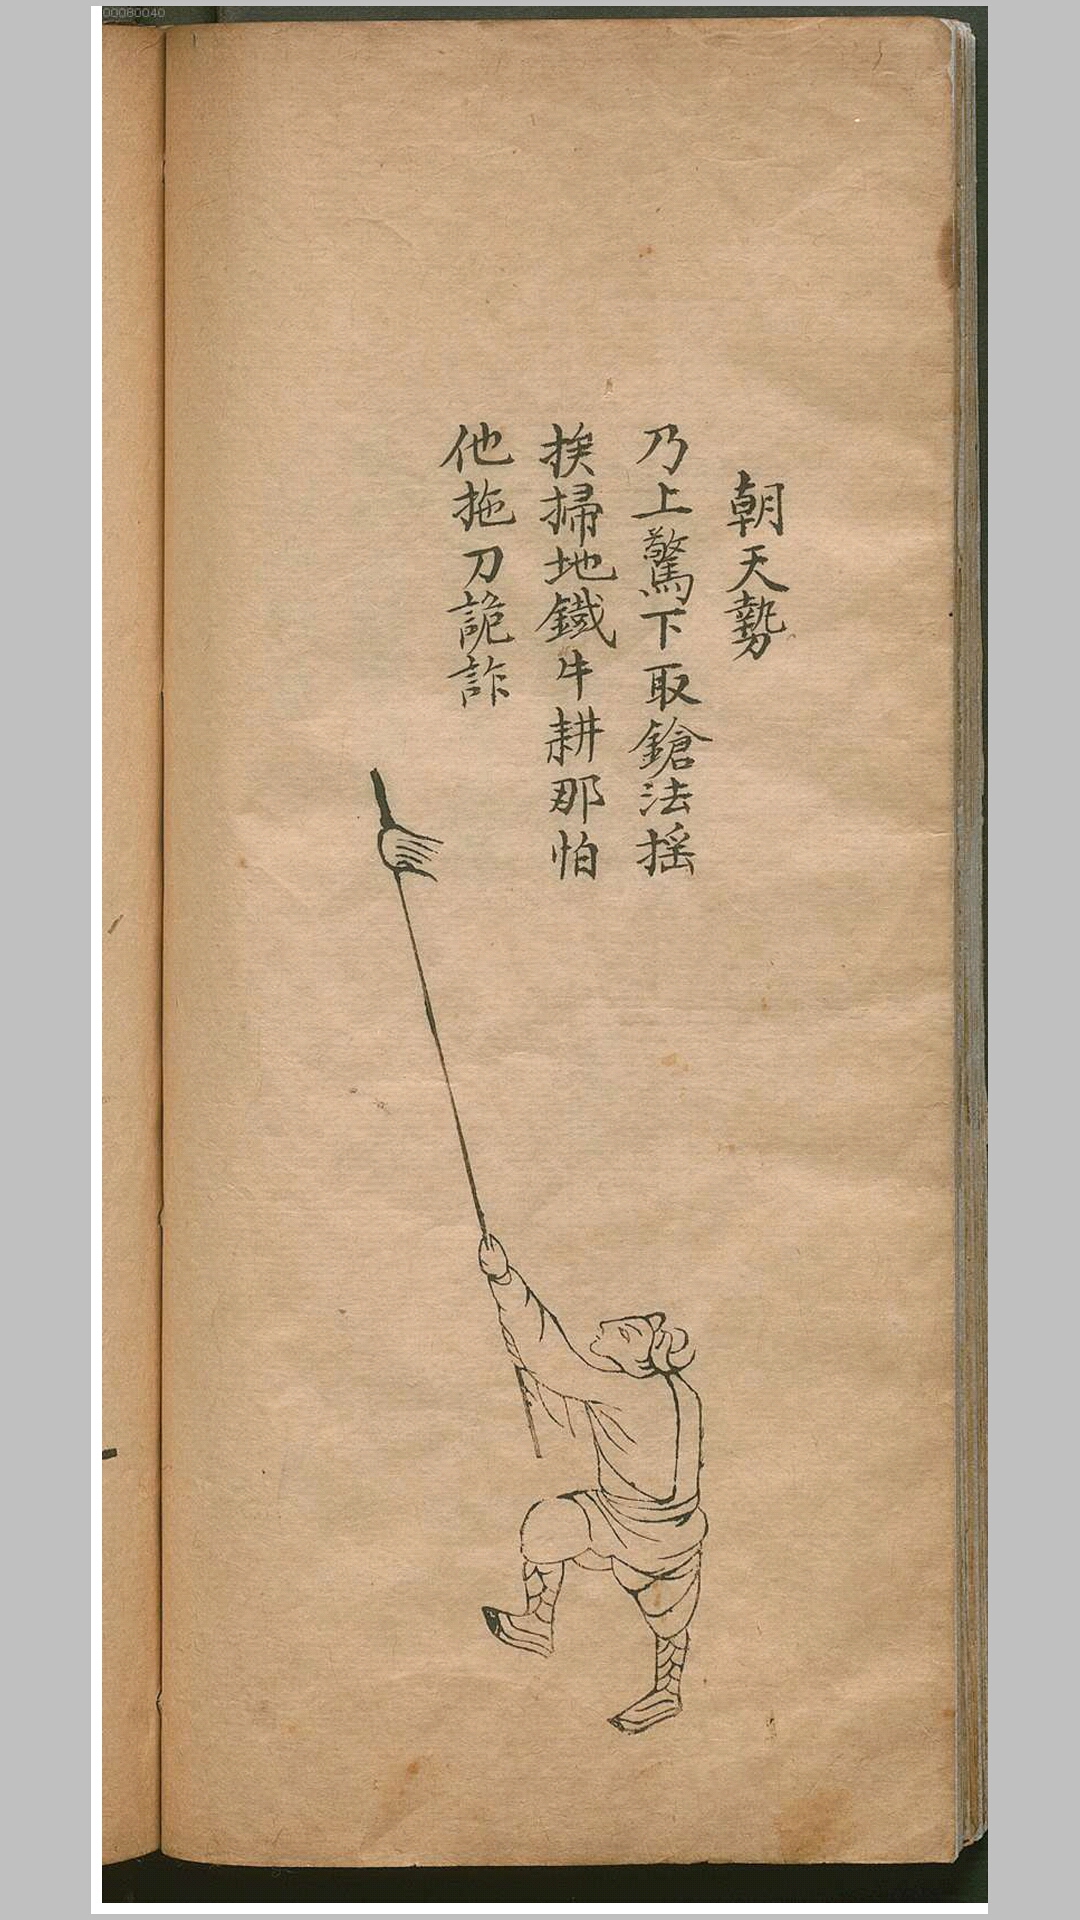 朝天勢
乃上驚下取鎗法揺
挨掃地鐵牛耕那怕
他拖刀詭詐
00080040